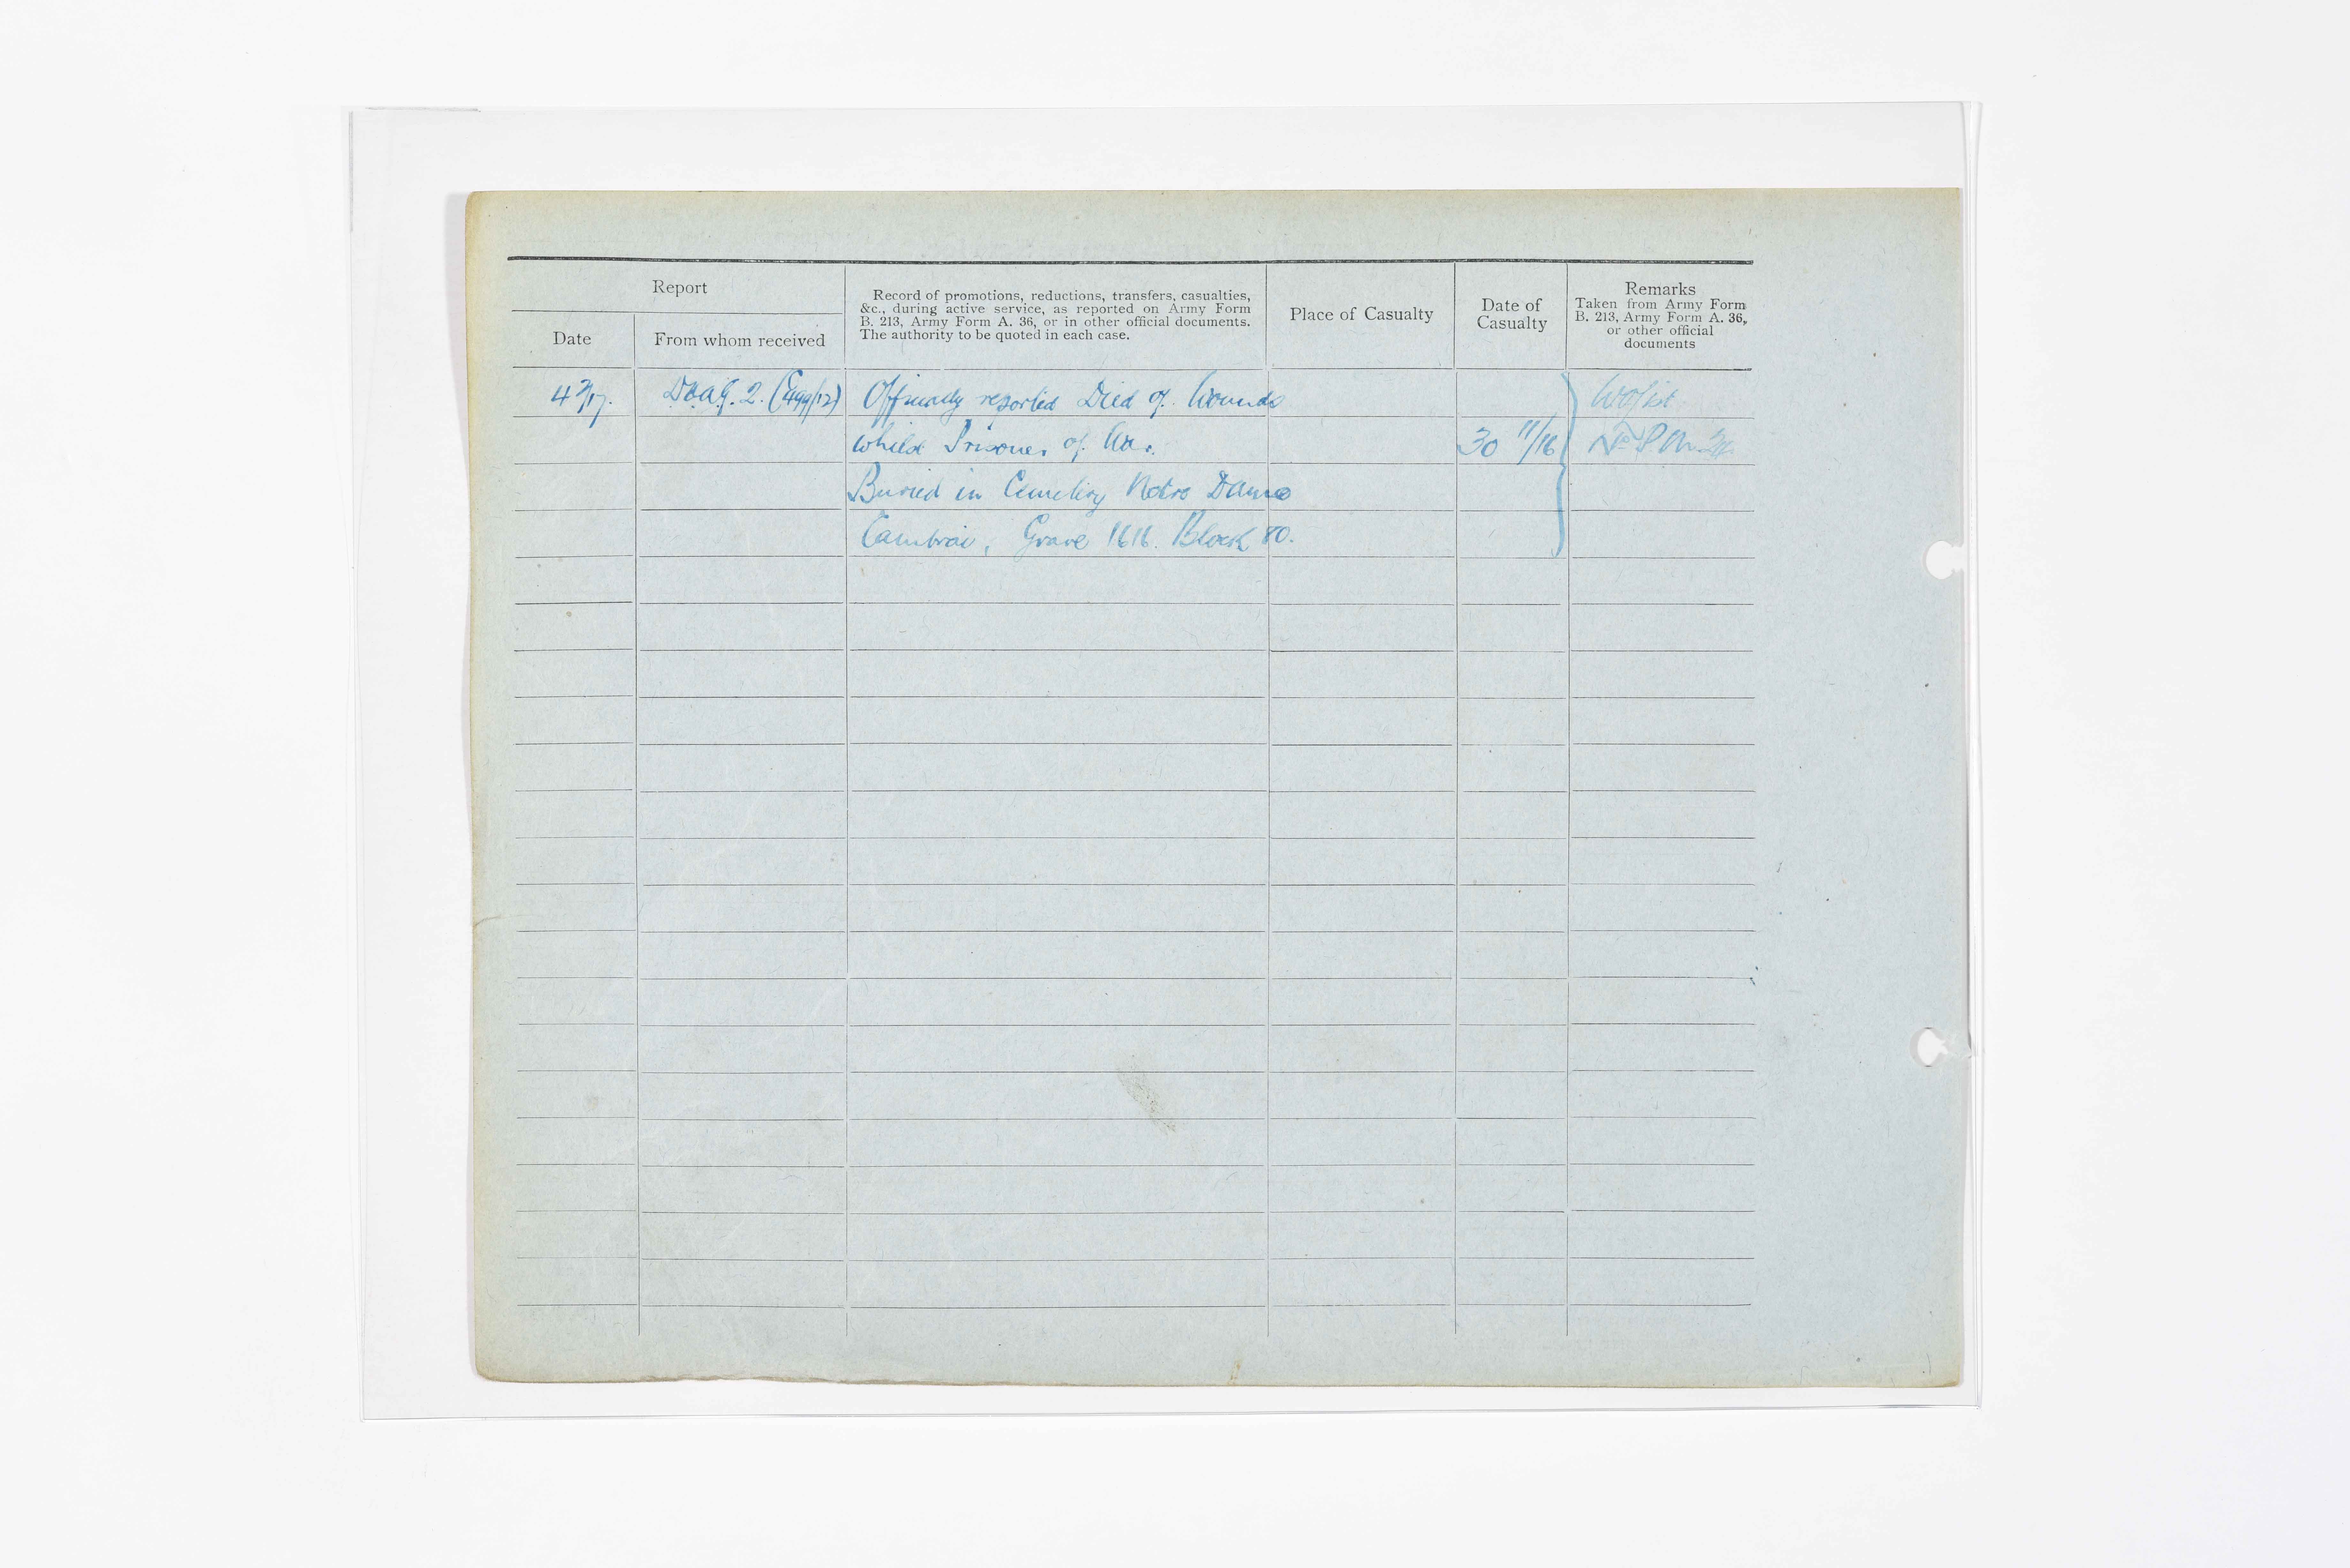 Report
Date
From whom received
Record of promotions, reductions, transfers, casualties,
&c., during active service, as reported on Army Form
B. 213, Army Form A. 36, or in other official documents.
The authority to be quoted in each case.
Place of Casualty
Date of
Casualty
Remarks
Taken from Army Form
B. 213, Army Form A. 36,
or other official
documents
Officially reported Died of Wounds
whilst Prisoner of War.
30 11/16
Buried in Cemetery Notre Dame
Cambrai, Grave 1616. Block 80.